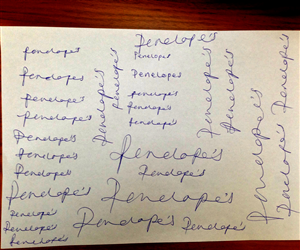 Penelope's
Penelope's
Penelope's
Penelope's
Penelope's
Penelope's
Penelope's
Penelope's
Penelope
Penelope's
Penelope's
Penelope's
Penelope's
Penelope's
Penelope's
Penelope's
Penelope's
Penelope's
Penelope's
Penelope's
Penelope's
Penelope's
Penelope's
Penelope's
Penelope's
Penelope's
Penelope's
Penelope's
Penelope's
Penelope's